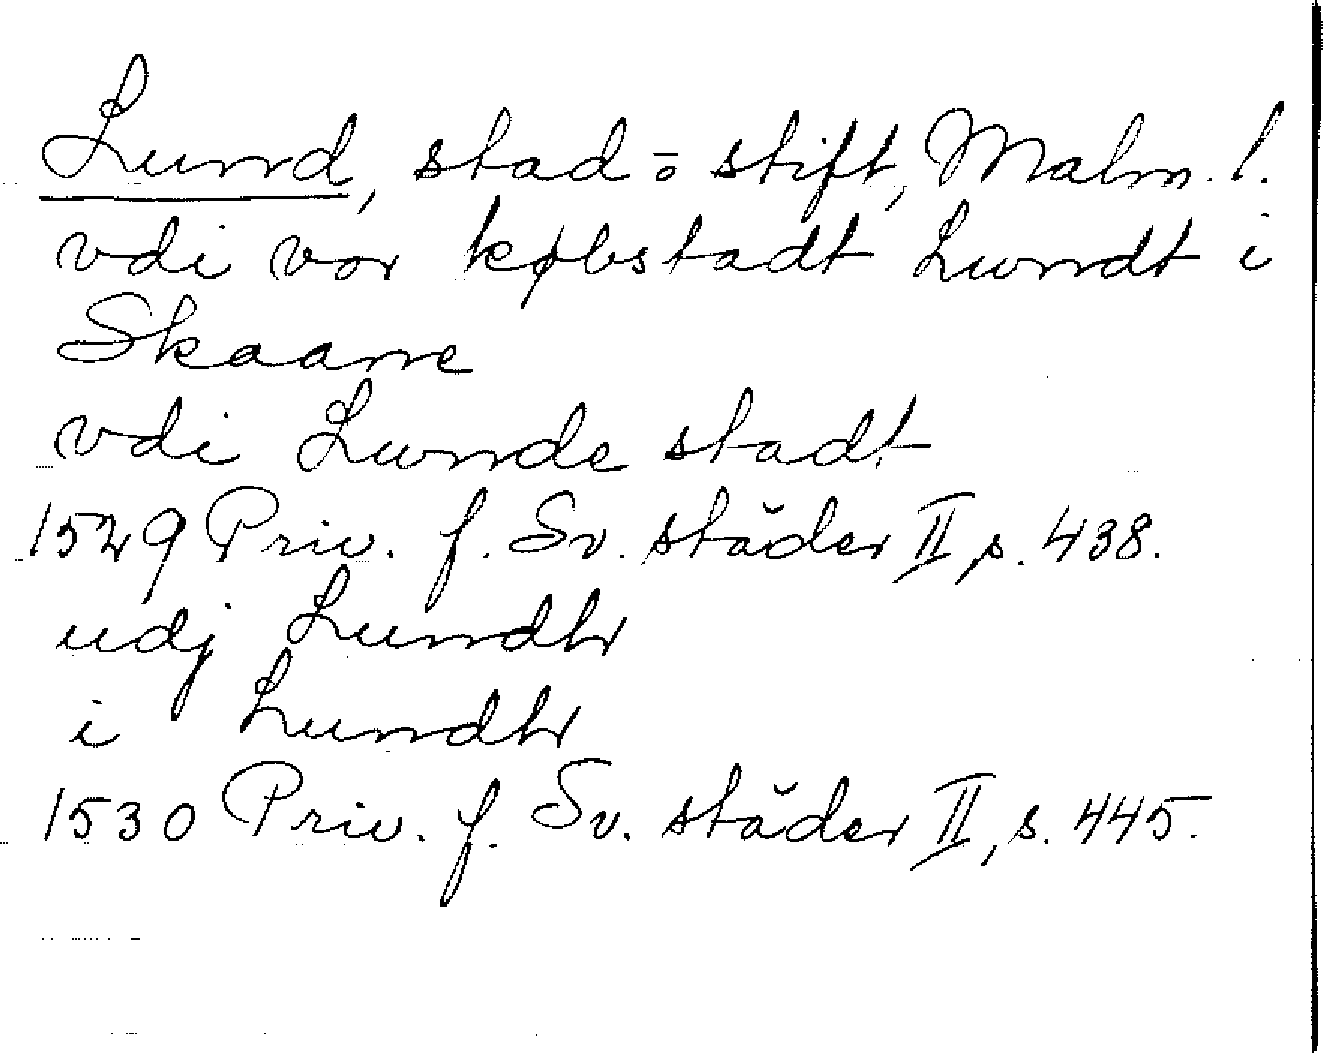 Lund, stad o stift, Malm. l.
vdi vor købstadt Lundt i
Skaane
vdi Lunde stadt
1529 Priv. f. Sv. städer II, s. 438.
udj Lundh
i Lundh
1530 Priv. f. Sv. städer II, s. 445.